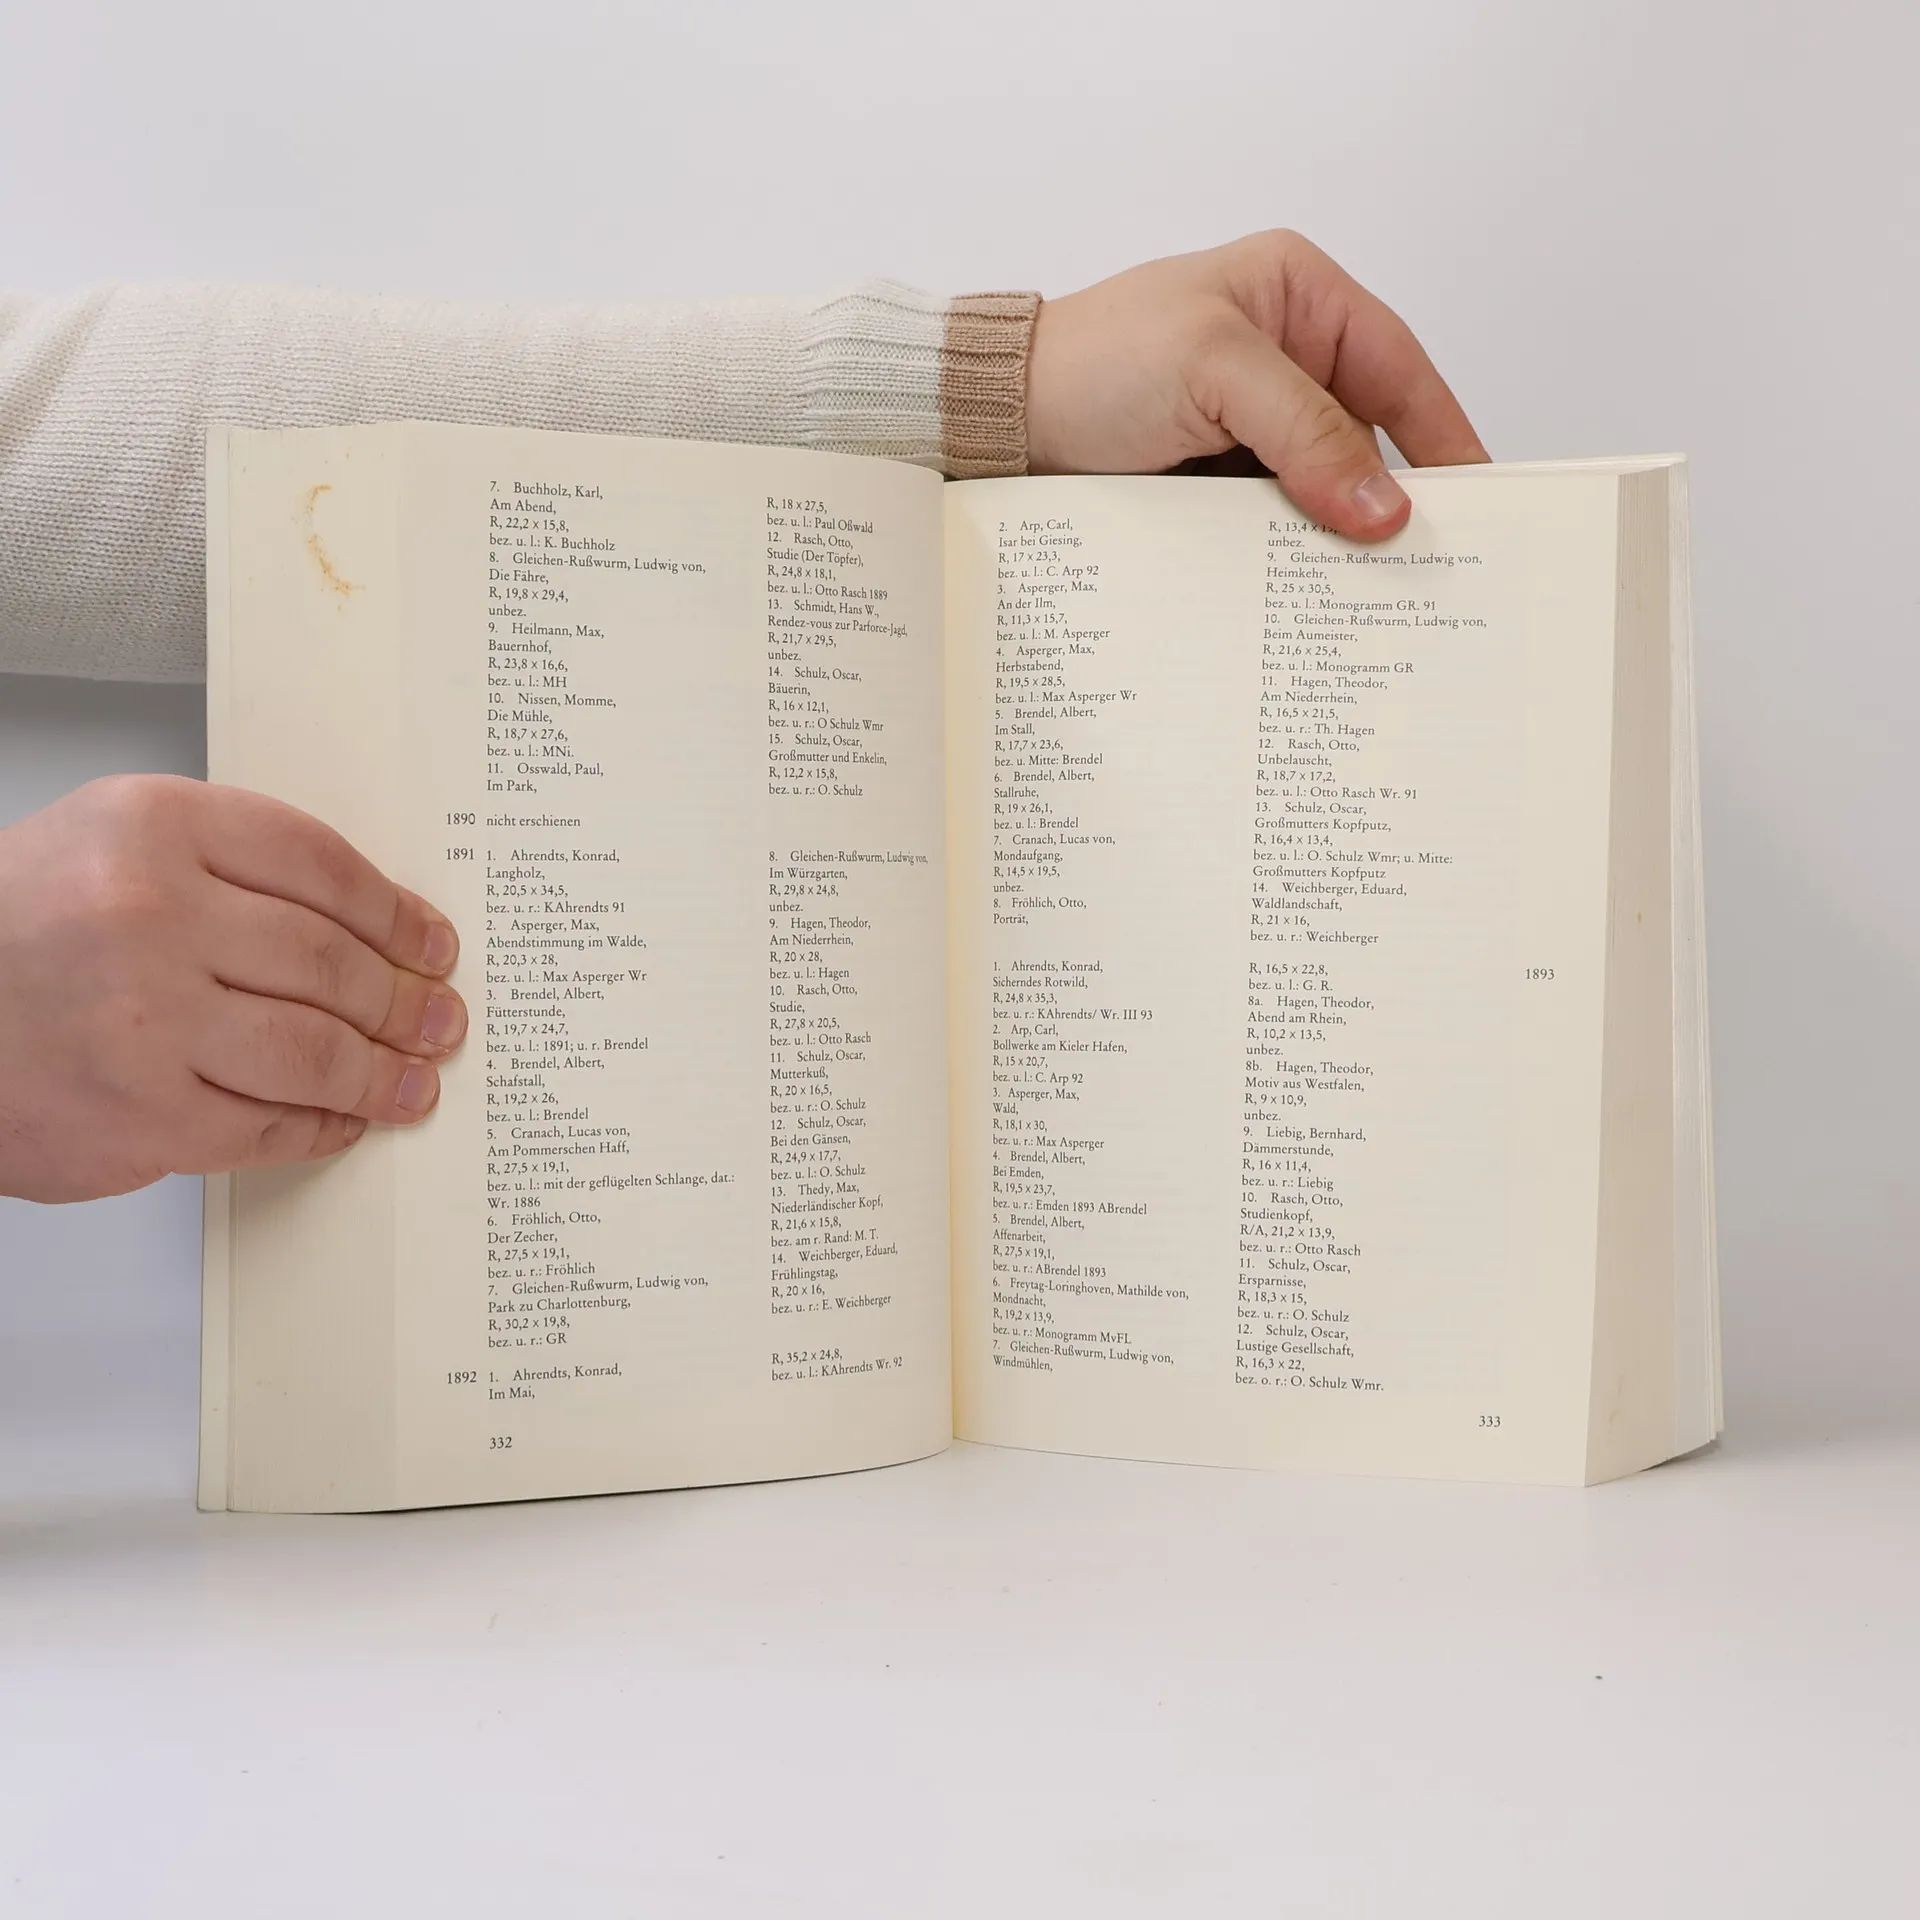 7. Buchholz, Karl,
Am Abend,
R, 22,2 x 15,8,
bez. u. l.: K. Buchholz
8. Gleichen-Rußwurm, Ludwig von,
Die Fähre,
R, 19,8 x 29,4,
unbez.
9. Heilmann, Max,
Bauernhof,
R, 23,8 x 16,6,
bez. u. l.: MH
10. Nissen, Momme,
Die Mühle,
R, 18,7 x 27,6,
bez. u. l.: MNi.
11. Osswald, Paul,
Im Park,
R, 18 x 27,5,
bez. u. l.: Paul Oßwald
12. Rasch, Otto,
Studie (Der Töpfer),
R, 24,8 x 18,1,
bez. u. l.: Otto Rasch 1889
13. Schmidt, Hans W.,
Rendez-vous zur Parforce-Jagd,
R, 21,7 x 29,5,
unbez.
14. Schulz, Oscar,
Bäuerin,
R, 16 x 12,1,
bez. u. r.: O Schulz Wmr
15. Schulz, Oscar,
Großmutter und Enkelin,
R, 12,2 x 15,8,
bez. u. r.: O. Schulz
1890 nicht erschienen
1891 1. Ahrendts, Konrad,
Langholz,
R, 20,5 x 34,5,
bez. u. r.: KAhrendts 91
2. Asperger, Max,
Abendstimmung im Walde,
R, 20,3 x 28,
bez. u. l.: Max Asperger Wr
3. Brendel, Albert,
Fütterstunde,
R, 19,7 x 24,7,
bez. u. l.: 1891; u. r. Brendel
4. Brendel, Albert,
Schafstall,
R, 19,2 x 26,
bez. u. l.: Brendel
5. Cranach, Lucas von,
Am Pommerschen Haff,
R, 27,5 x 19,1,
bez. u. l.: mit der geflügelten Schlange, dat.:
Wr. 1886
6. Fröhlich, Otto,
Der Zecher,
R, 27,5 x 19,1,
bez. u. r.: Fröhlich
7. Gleichen-Rußwurm, Ludwig von,
Park zu Charlottenburg,
R, 30,2 x 19,8,
bez. u. r.: GR
8. Gleichen-Rußwurm, Ludwig von,
Im Würzgarten,
R, 29,8 x 24,8,
unbez.
9. Hagen, Theodor,
Am Niederrhein,
R, 20 x 28,
bez. u. l.: Hagen
10. Rasch, Otto,
Studie,
R, 27,8 x 20,5,
bez. u. l.: Otto Rasch
11. Schulz, Oscar,
Mutterkuß,
R, 20 x 16,5,
bez. u. r.: O. Schulz
12. Schulz, Oscar,
Bei den Gänsen,
R, 24,9 x 17,7,
bez. u. l.: O. Schulz
13. Thedy, Max,
Niederländischer Kopf,
R, 21,6 x 15,8,
bez. am r. Rand: M. T.
14. Weichberger, Eduard,
Frühlingstag,
R, 20 x 16,
bez. u. r.: E. Weichberger
1892 1. Ahrendts, Konrad,
Im Mai,
R, 35,2 x 24,8,
bez. u. l.: KAhrendts Wr. 92
332
2. Arp, Carl,
Isar bei Giesing,
R, 17 x 23,3,
bez. u. l.: C. Arp 92
3. Asperger, Max,
An der Ilm,
R, 11,3 x 15,7,
bez. u. l.: M. Asperger
4. Asperger, Max,
Herbstabend,
R, 19,5 x 28,5,
bez. u. l.: Max Asperger Wr
5. Brendel, Albert,
Im Stall,
R, 17,7 x 23,6,
bez. u. Mitte: Brendel
6. Brendel, Albert,
Stallruhe,
R, 19 x 26,1,
bez. u. l.: Brendel
7. Cranach, Lucas von,
Mondaufgang,
R, 14,5 x 19,5,
unbez.
8. Fröhlich, Otto,
Porträt,
R, 13,4 x
unbez.
9. Gleichen-Rußwurm, Ludwig von,
Heimkehr,
R, 25 x 30,5,
bez. u. l.: Monogramm GR. 91
10. Gleichen-Rußwurm, Ludwig von,
Beim Aumeister,
R, 21,6 x 25,4,
bez. u. l.: Monogramm GR
11. Hagen, Theodor,
Am Niederrhein,
R, 16,5 x 21,5,
bez. u. r.: Th. Hagen
12. Rasch, Otto,
Unbelauscht,
R, 18,7 x 17,2,
bez. u. l.: Otto Rasch Wr. 91
13. Schulz, Oscar,
Großmutters Kopfputz,
R, 16,4 x 13,4,
bez. u. l.: O. Schulz Wmr; u. Mitte:
Großmutters Kopfputz
14. Weichberger, Eduard,
Waldlandschaft,
R, 21 x 16,
bez. u. r.: Weichberger
1893
1. Ahrendts, Konrad,
Sicherndes Rotwild,
R, 24,8 x 35,3,
bez. u. r.: KAhrendts/ Wr. III 93
2. Arp, Carl,
Bollwerke am Kieler Hafen,
R, 15 x 20,7,
bez. u. l.: C. Arp 92
3. Asperger, Max,
Wald,
R, 18,1 x 30,
bez. u. r.: Max Asperger
4. Brendel, Albert,
Bei Emden,
R, 19,5 x 23,7,
bez. u. r.: Emden 1893 ABrendel
5. Brendel, Albert,
Affenarbeit,
R, 27,5 x 19,1,
bez. u. r.: ABrendel 1893
6. Freytag-Loringhoven, Mathilde von,
Mondnacht,
R, 19,2 x 13,9,
bez. u. r.: Monogramm MvFL
7. Gleichen-Rußwurm, Ludwig von,
Windmühlen,
R, 16,5 x 22,8,
bez. u. l.: G. R.
8a. Hagen, Theodor,
Abend am Rhein,
R, 10,2 x 13,5,
unbez.
8b. Hagen, Theodor,
Motiv aus Westfalen,
R, 9 x 10,9,
unbez.
9. Liebig, Bernhard,
Dämmerstunde,
R, 16 x 11,4,
bez. u. r.: Liebig
10. Rasch, Otto,
Studienkopf,
R/A, 21,2 x 13,9,
bez. u. r.: Otto Rasch
11. Schulz, Oscar,
Ersparnisse,
R, 18,3 x 15,
bez. u. r.: O. Schulz
12. Schulz, Oscar,
Lustige Gesellschaft,
R, 16,3 x 22,
bez. o. r.: O. Schulz Wmr.
333